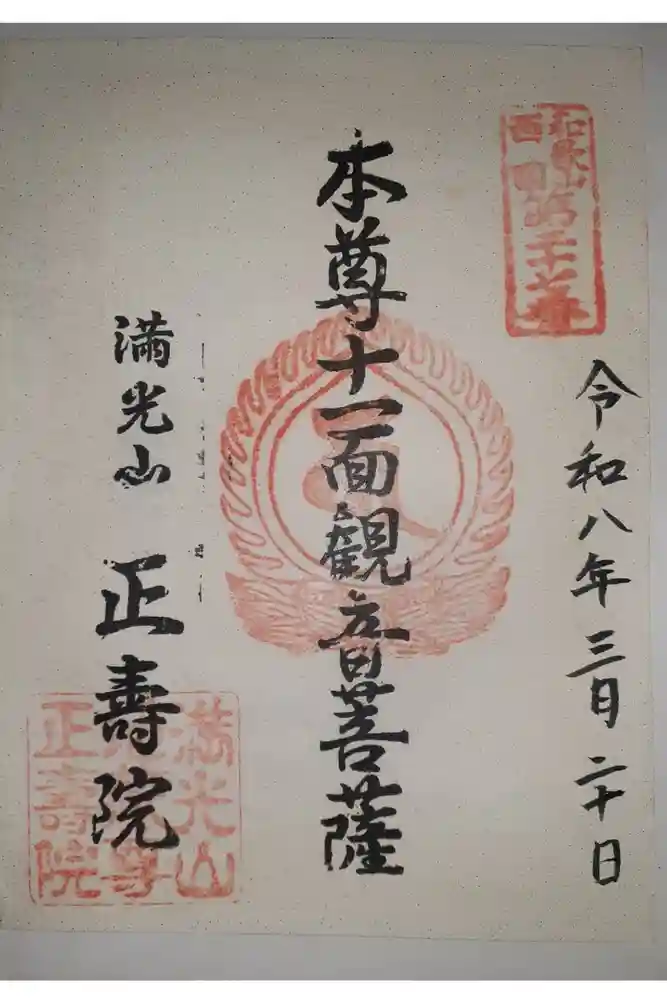 和歌山
西国第三十番
令和八年三月二十日
本尊十一面觀音菩薩
満光山
正壽院
満光山
本尊
正壽院